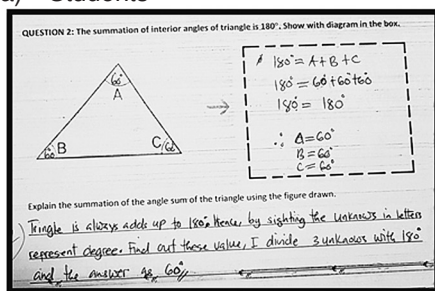 a) Students
QUESTION 2: The summation of interior angles of triangle is 180°. Show with diagram in the box.
60°
A
60° B
C 60°
180° = A + B + C
180° = 60° + 60° + 60°
180° = 180°
∴ A = 60°
B = 60°
C = 60°
Explain the summation of the angle sum of the triangle using the figure drawn.
Tringle is always adds up to 180°. Hence, by sighting the unknowns in letters
represent degree. Find out these value, I divide 3 unknowns with 180°
and the answer is 60°//